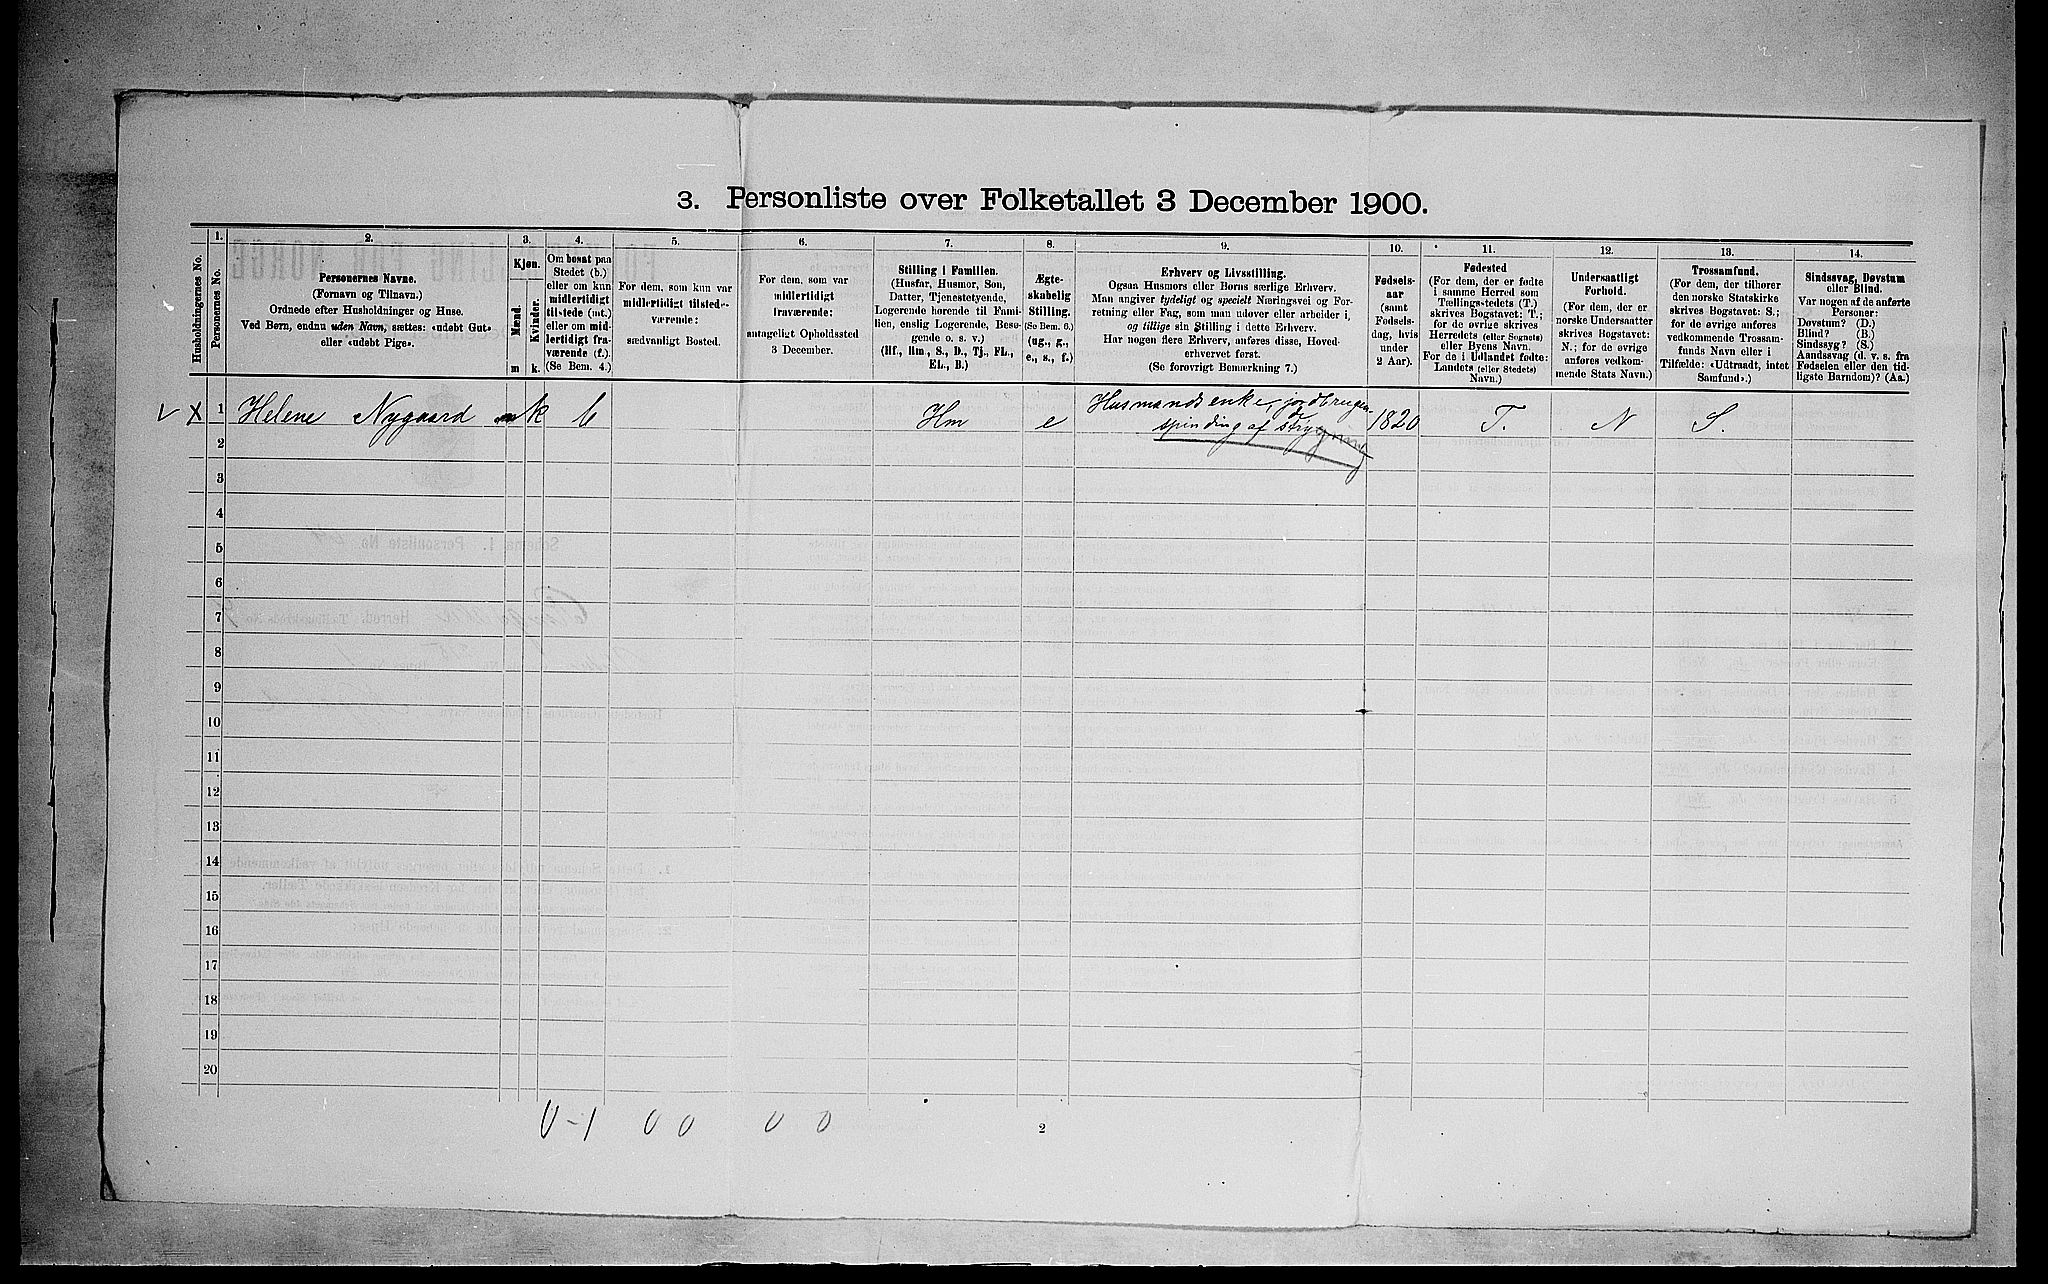 3. Personliste over Folketallet 3 December 1900.
Husholdningernes No.
1.
Personernes No.
2.
Personernes Navne.
(Fornavn og Tilnavn.)
Ordnede efter Husholdninger og Huse.
Ved Børn, endnu uden Navn, sættes: «udøbt Gut»
eller «udøbt Pige».
3.
Kjøn.
Mænd.
Kvinder.
m
k.
4.
Om bosat paa
Stedet (b.)
eller om kun
midlertidigt
tilstede (mt.)
eller om mid-
lertidigt fra-
værende (f.).
(Se Bem. 4.)
5.
For dem, som kun var
midlertidigt tilstede-
værende:
sædvanligt Bosted.
6.
For dem, som var
midlertidigt
fraværende:
antageligt Opholdssted
3 December.
7.
Stilling i Familien.
(Husfar, Husmor, Søn,
Datter, Tjenestetyende,
Logerende hørende til Fami-
lien, enslig Logerende, Besø-
gende o. s. v.)
(Hf., Hm., S., D., Tj., FL.,
EL., B.)
8.
Ægte-
skabelig
Stilling.
(Se Bem. 6.)
(ug., g.,
e., s., f.)
9.
Erhverv og Livsstilling.
Ogsaa Husmors eller Børns særlige Erhverv.
Man angiver tydeligt og specielt Næringsvei og For-
retning eller Fag, som man udøver eller arbeider i,
og tillige sin Stilling i dette Erhverv.
Har nogen flere Erhverv, anføres disse, Hoved-
erhvervet først.
(Se forøvrigt Bemærkning 7.)
10.
Fødsels-
aar
(samt
Fødsels-
dag, hvis
under
2 Aar).
11.
Fødested
(For dem, der er fødte
i samme Herred som
Tællingsstedets (T.)
skrives Bogstavet: T.;
for de øvrige skrives
Herredets (eller Sognets)
eller Byens Navn.
For de i Udlandet fødte:
Landets (eller Stedets)
Navn.)
12.
Undersaatligt
Forhold.
(For dem, der er
norske Undersaatter
skrives Bogstavet:
N.; for de øvrige
anføres vedkom-
mende Stats Navn.)
13.
Trossamfund.
(For dem, der tilhører
den norske Statskirke
skrives Bogstavet: S.;
for de øvrige anføres
vedkommende Trossam-
funds Navn eller i
Tilfælde: «Udtraadt, intet
Samfund».)
14.
Sindssvag, Døvstum
eller Blind.
Var nogen af de anførte
Personer:
Døvstum? (D.)
Blind? (B.)
Sindssyg? (S.)
Aandssvag (d. v. s. fra
Fødselen eller den tid-
ligste Barndom)? (Aa.)
X 1 Helene Nygaard k b Hm e Husmandsenke, jordbrugen- 1820 T. N S.
de
spinding af strygning
2
3
4
5
6
7
8
9
10
11
12
13
14
15
16
17
18
19
20
0-1 0 0 0 0
2